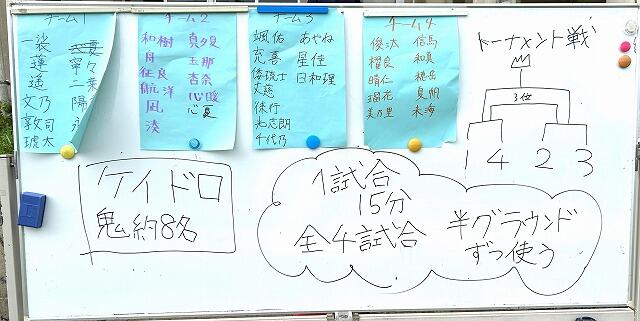 チーム1
蓮 寧々
遥 二葉
文乃 陽
敦司 永
琥太
チーム2
和樹 真夕夏
舟 玉那
征良 杏奈
航洋 心暖
凪 心夏
湊
チーム3
颯佑 あやね
充喜 星佳
日和理
丈慈
侑行
光志朗
千代乃
チーム4
俊汰 信馬
櫂良 和真
晴仁 穂岳
瑠花 夏帆
美乃里 未海
トーナメント戦
3位
1 4 2 3
ケイドロ
鬼約8名
1試合
15分
全4試合
半グラウンド
ずつ使う